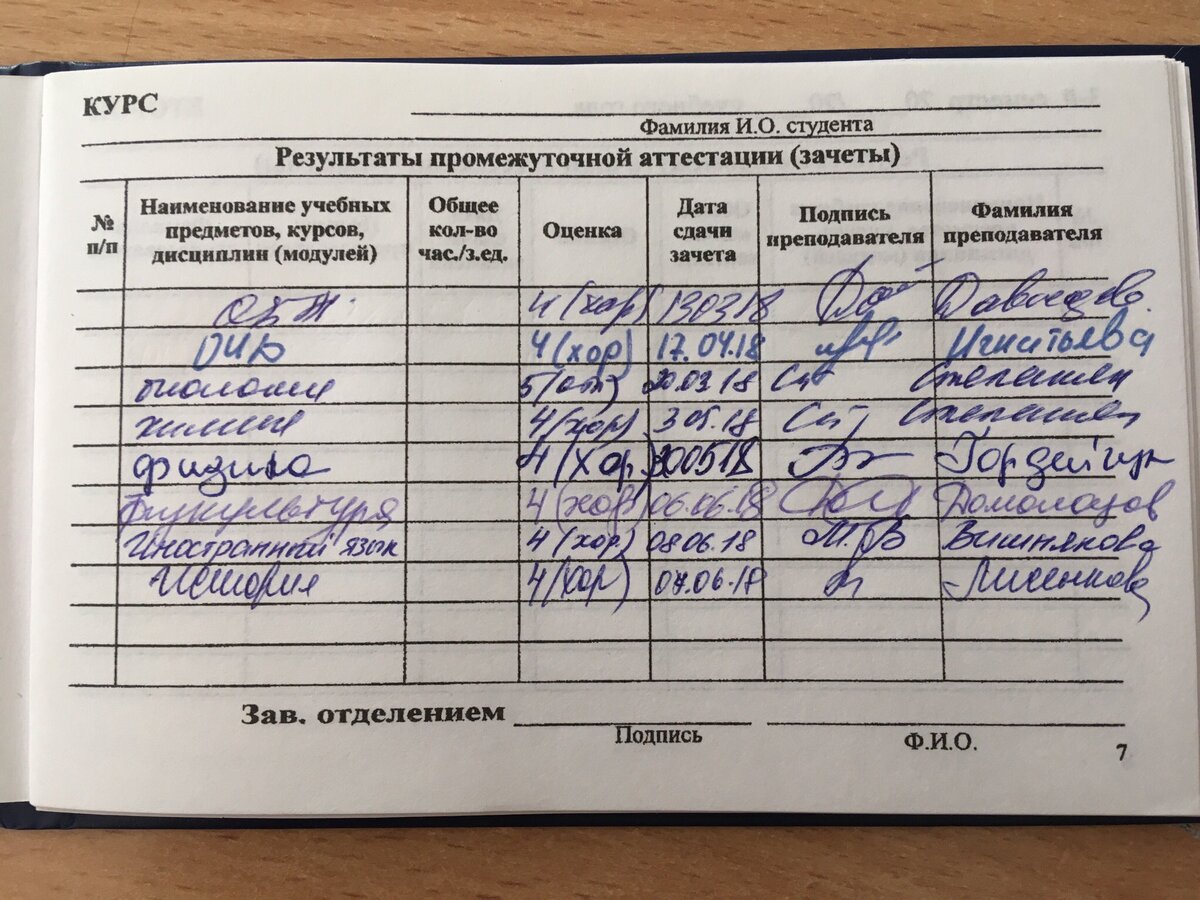 КУРС
Фамилия И.О. студента
Результаты промежуточной аттестации (зачеты)
№ п/п Наименование учебных предметов, курсов, дисциплин (модулей) Общее кол-во час./з.ед. Оценка Дата сдачи зачета Подпись преподавателя Фамилия преподавателя
ОБЖ 4 (хор) 130318 Давыдова
4 (хор) 17.04.18 Игнатьева
биология 5 (отл) 20.03.18 Степанян
химия 4 (хор) 3 05.18 Степанян
физика 4 (хор) 300518 Гордейчук
Физкультура 4 (хор) 06.06.18 Домолазов
Иностранный язык 4 (хор) 08.06.18 Вишнякова
История 4 (хор) 07.06.18
Зав. отделением
Подпись Ф.И.О.
7